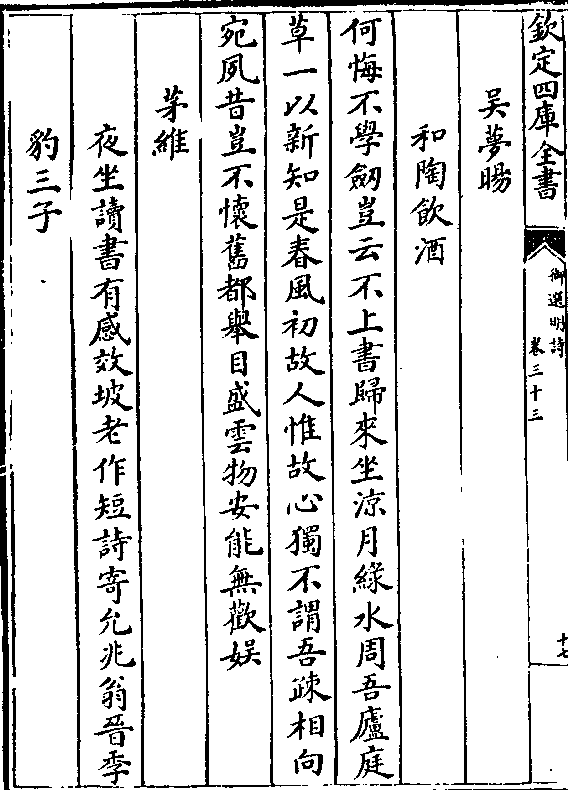 欽定四庫全書
御選明詩
卷三十三
十七
吴夢暘
和陶飲酒
何悔不學劒豈云不上書歸來坐涼月綠水周吾廬庭
草一以新知是春風初故人惟故心獨不謂吾疎相向
宛夙昔豈不懷舊都舉目盛雲物安能無歡娱
茅維
夜坐讀書有感效坡老作短詩寄允兆翁晉季
豹三子